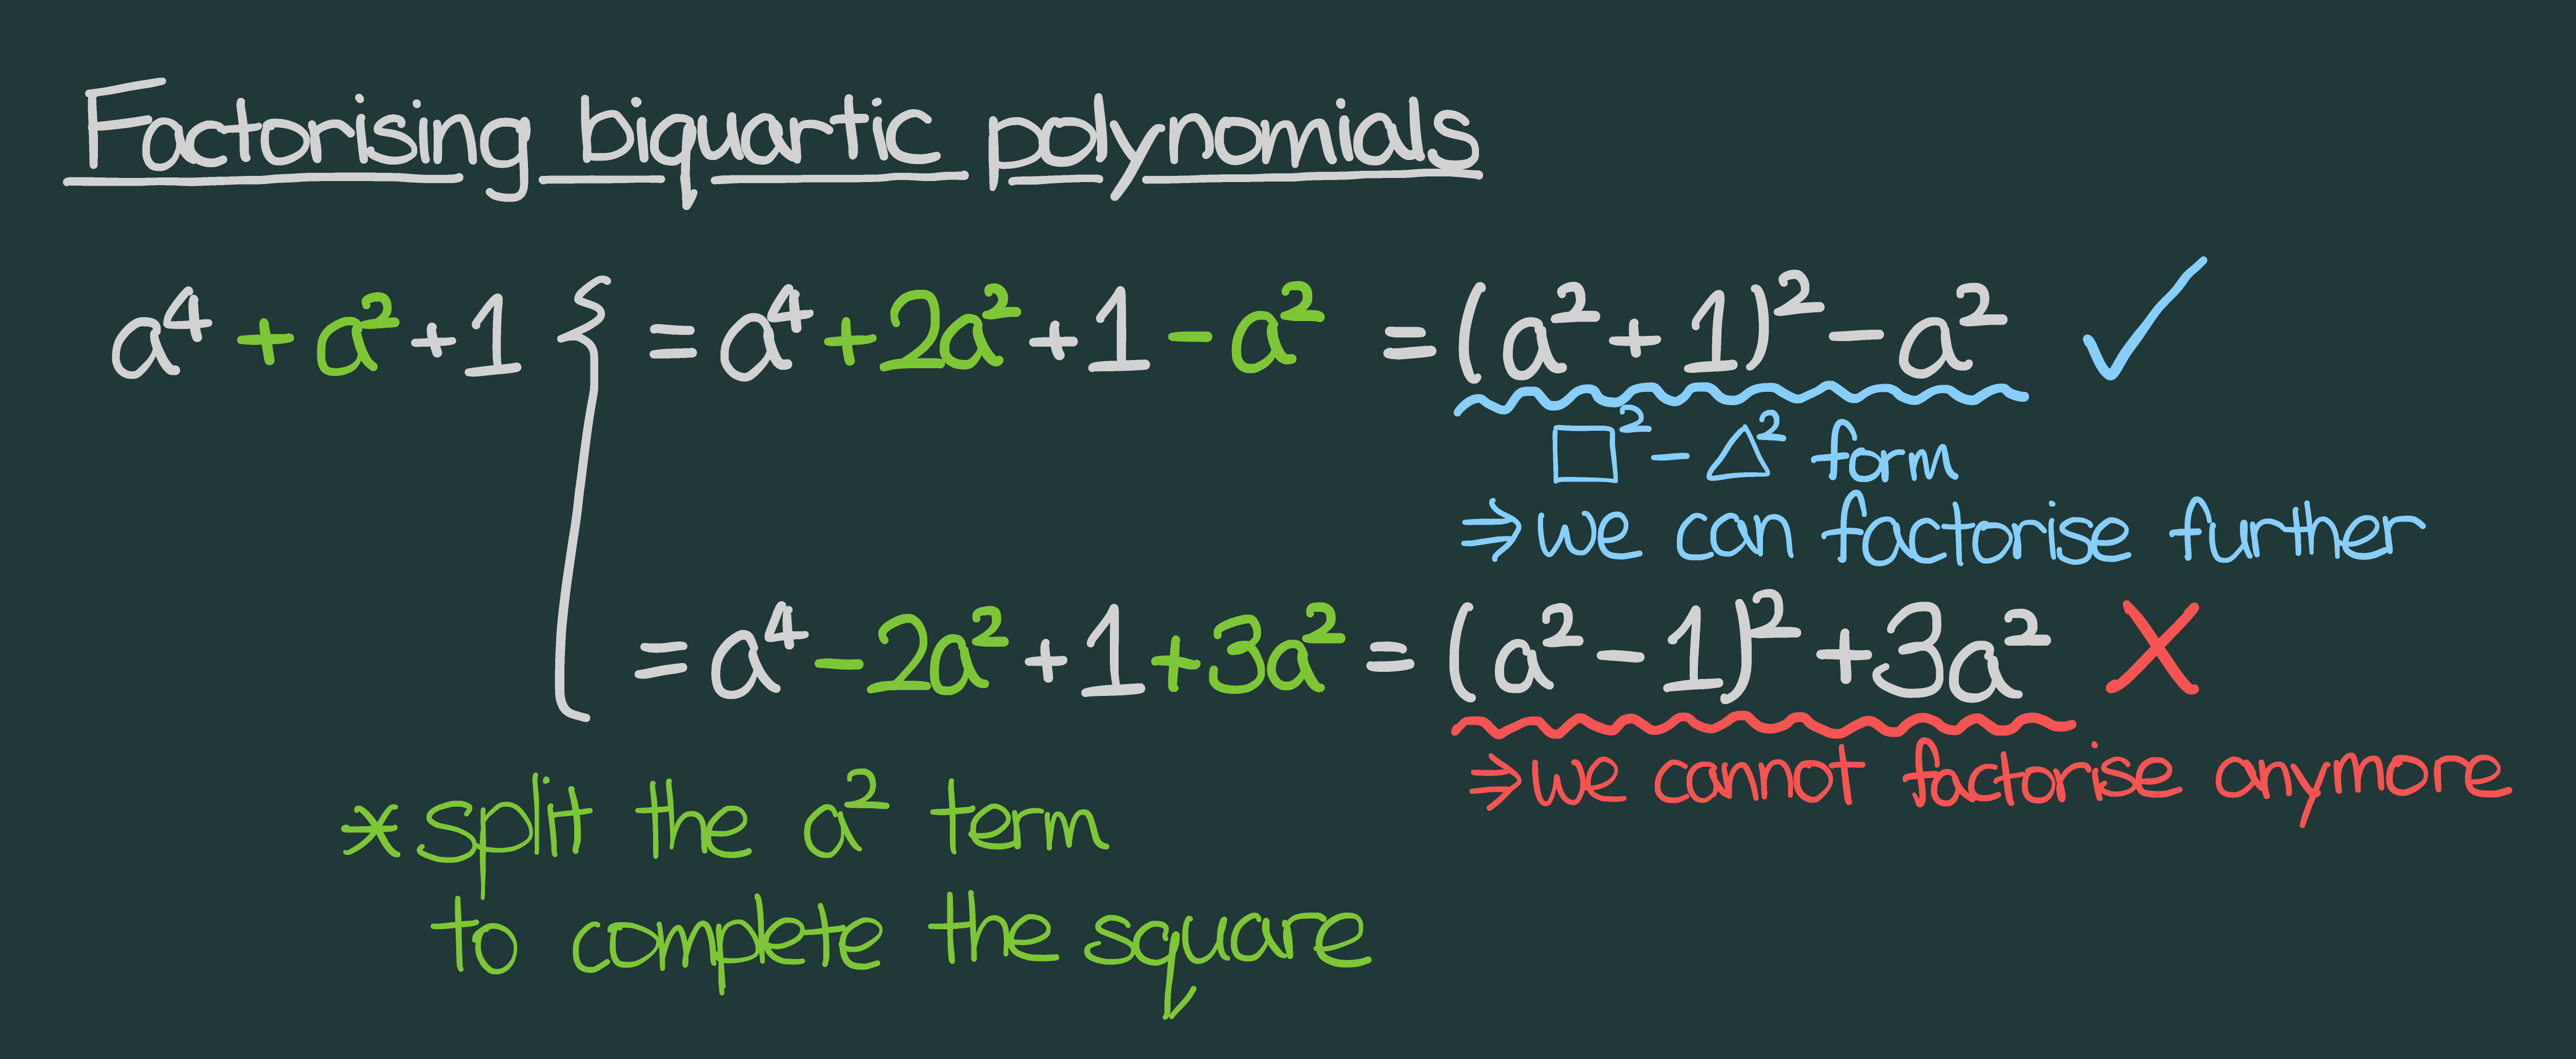 Factorising biquartic polynomials
a⁴ + a² + 1 { = a⁴ + 2a² + 1 - a² = (a² + 1)² - a² ✓
□² - △² form
⇒ we can factorise further
= a⁴ - 2a² + 1 + 3a² = (a² - 1)² + 3a² ✗
⇒ we cannot factorise anymore
* split the a² term
to complete the square